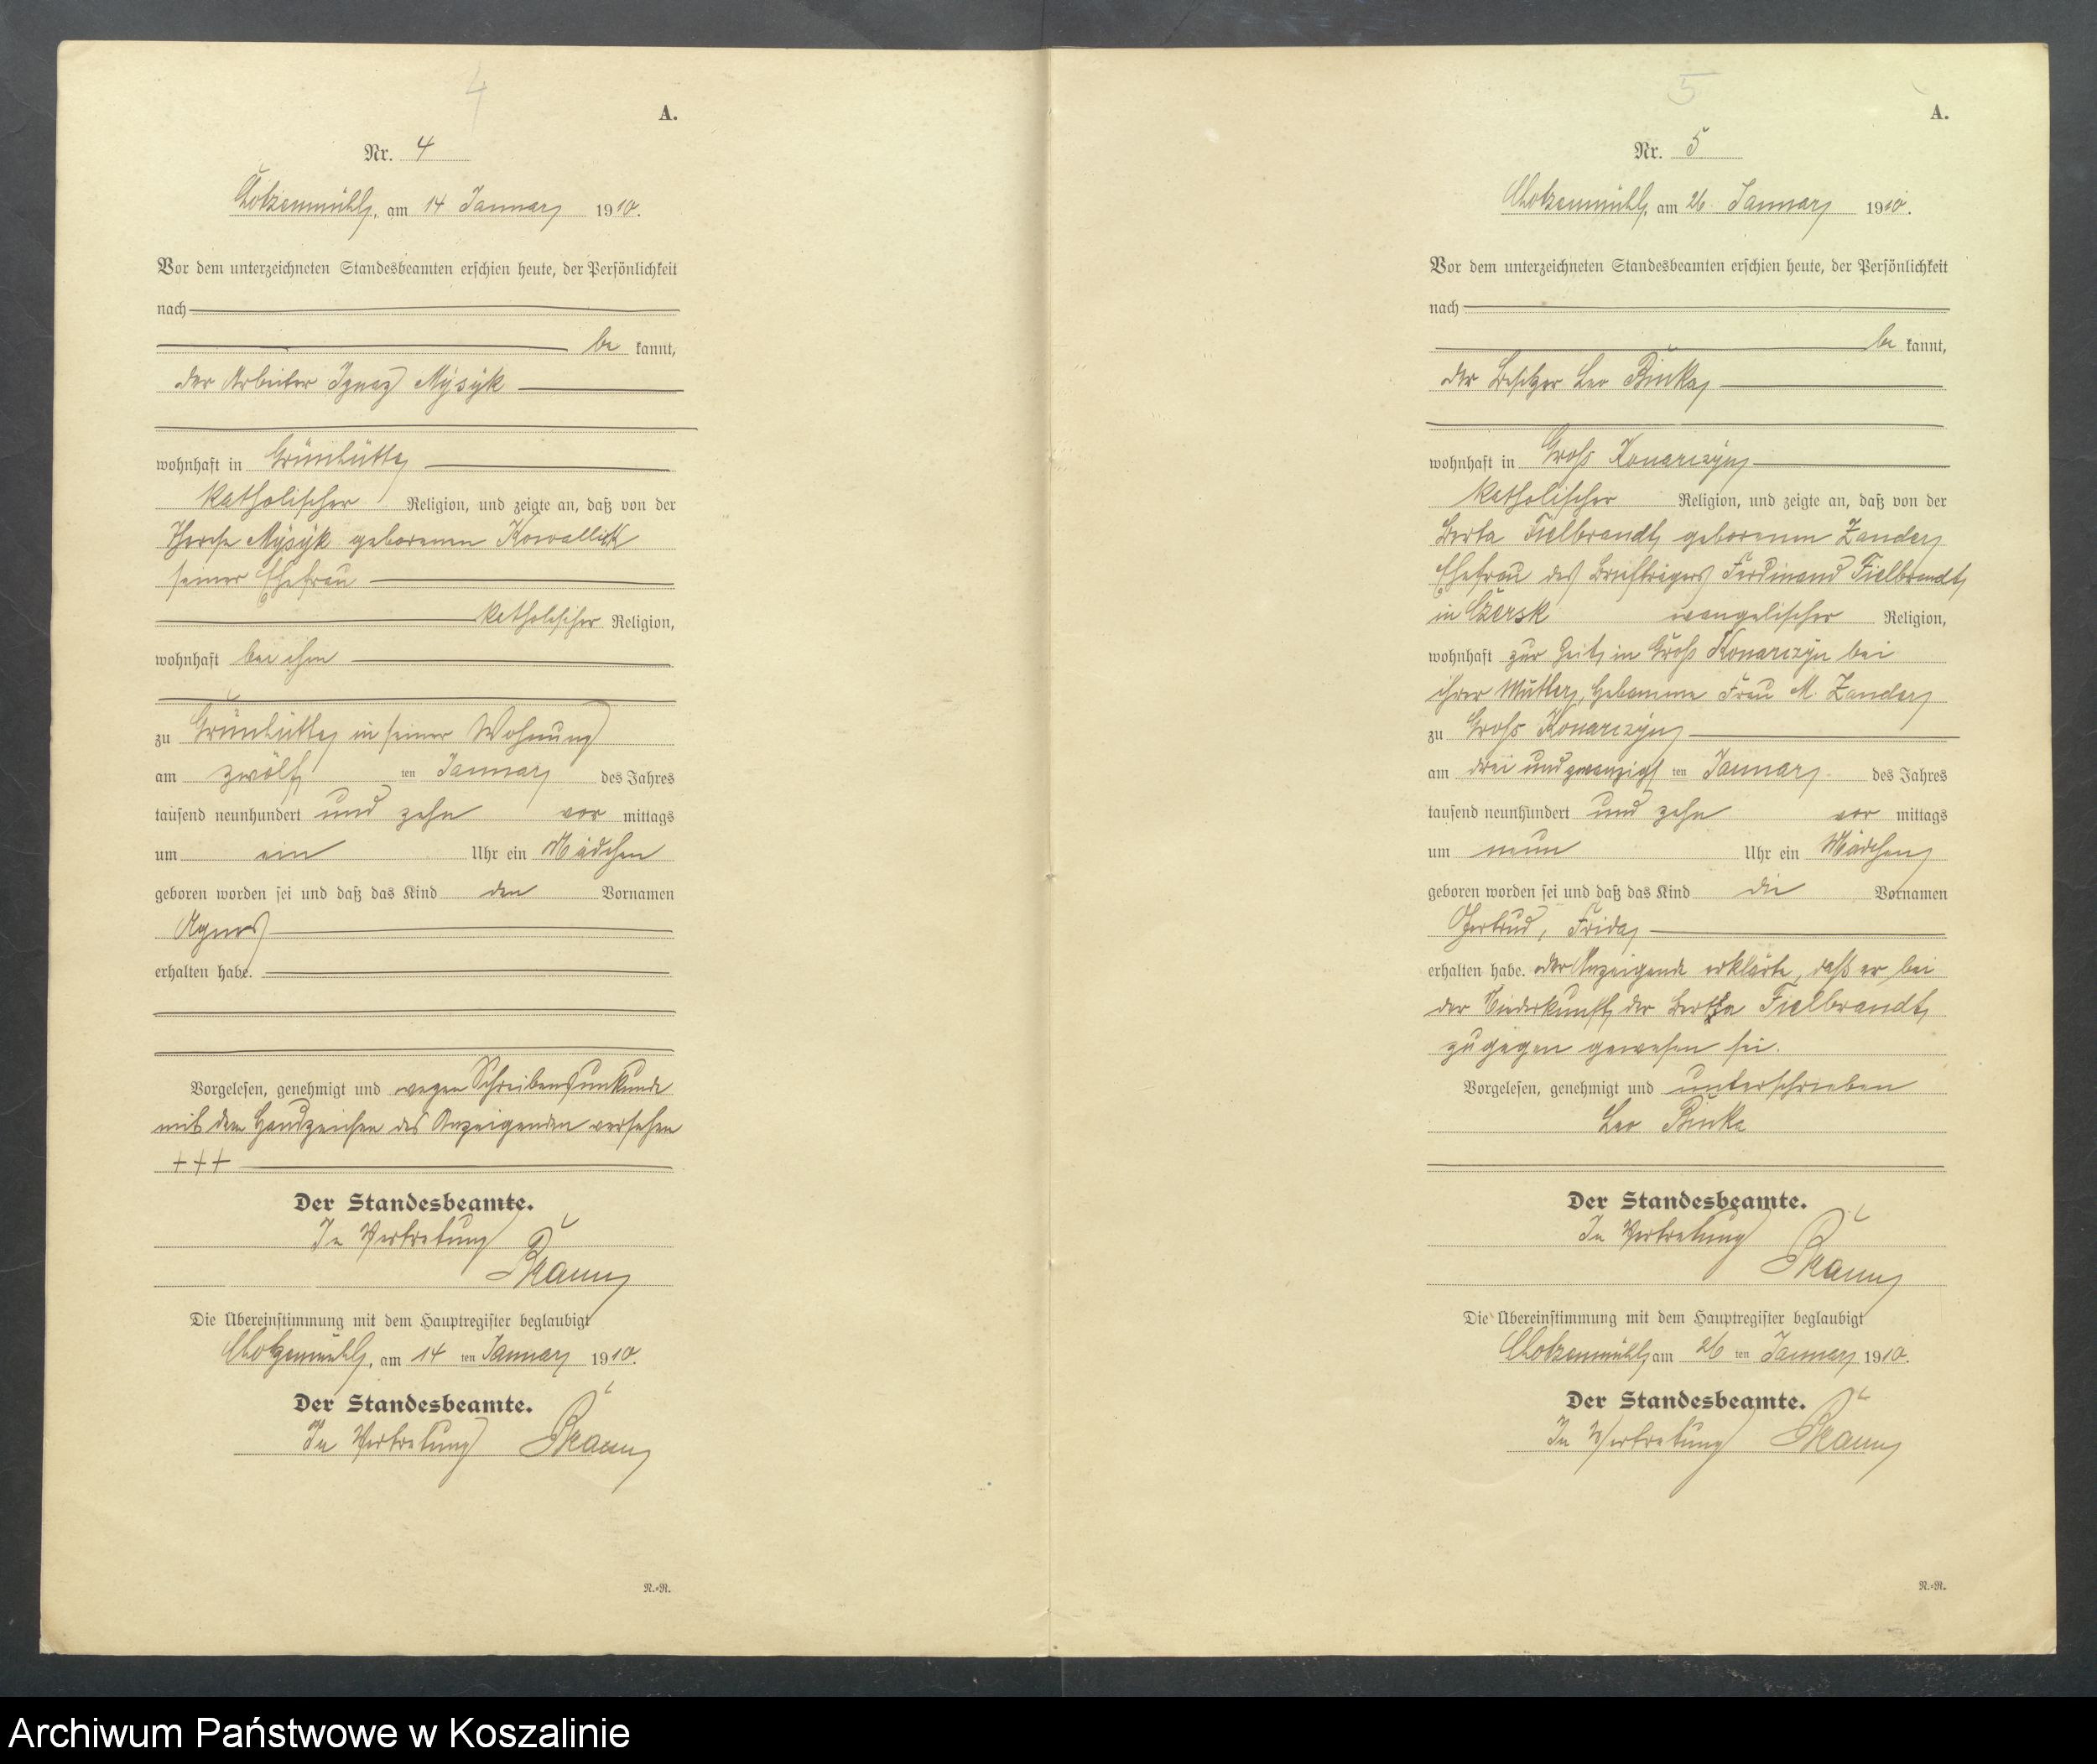 4
A.
Nr. 4
Chotzenmühle, am 14 Januar 1910.
Vor dem unterzeichneten Standesbeamten erschien heute, der Persönlichkeit
nach
be kannt,
der Arbeiter Ignaz Mysyk
wohnhaft in Grünhütte
katholischer Religion, und zeigte an, daß von der
Therese Mysyk geborenen Kowallick
seiner Ehefrau
katholischer Religion,
wohnhaft bei ihm
zu Grünhütte in seiner Wohnung
am zwölf ten Januar des Jahres
tausend neunhundert und zehn vor mittags
um ein Uhr ein Mädchen
geboren worden sei und daß das Kind den Vornamen
Agnes
erhalten habe.
Vorgelesen, genehmigt und wegen Schreibensunkunde
mit dem Handzeichen des Anzeigenden versehen
+++
Der Standesbeamte.
In Vertretung
Die Übereinstimmung mit dem Hauptregister beglaubigt
Chotzenmühle, am 14 ten Januar 1910.
Der Standesbeamte.
In Vertretung
N.=R.
5
A.
Nr. 5
Chotzenmühle, am 26 Januar 1910.
Vor dem unterzeichneten Standesbeamten erschien heute, der Persönlichkeit
nach
be kannt,
der Besitzer Leo Binka
wohnhaft in Groß Konarczyn
katholischer Religion, und zeigte an, daß von der
Berta Fielbrandt, geborenen Zander,
Ehefrau des Briefträgers Ferdinand Fielbrandt,
in Czersk evangelischer Religion,
wohnhaft zur Zeit, in Groß Konarczyn bei
ihrer Mutter, Hebamme Frau M. Zander,
zu Groß Konarczyn
am drei und zwanzigs ten Januar des Jahres
tausend neunhundert und zehn vor mittags
um neun Uhr ein Mädchen
geboren worden sei und daß das Kind die Vornamen
Gertrud, Frida,
erhalten habe. Der Anzeigende erklärte, daß er bei
der Niederkunft der Bertha Fielbrandt,
zugegen gewesen sei.
Vorgelesen, genehmigt und unterschrieben
Leo Binka
Der Standesbeamte.
In Vertretung
Die Übereinstimmung mit dem Hauptregister beglaubigt
Chotzenmühle, am 26 ten Januar 1910.
Der Standesbeamte.
In Vertretung
N.=R.
Archiwum Państwowe w Koszalinie